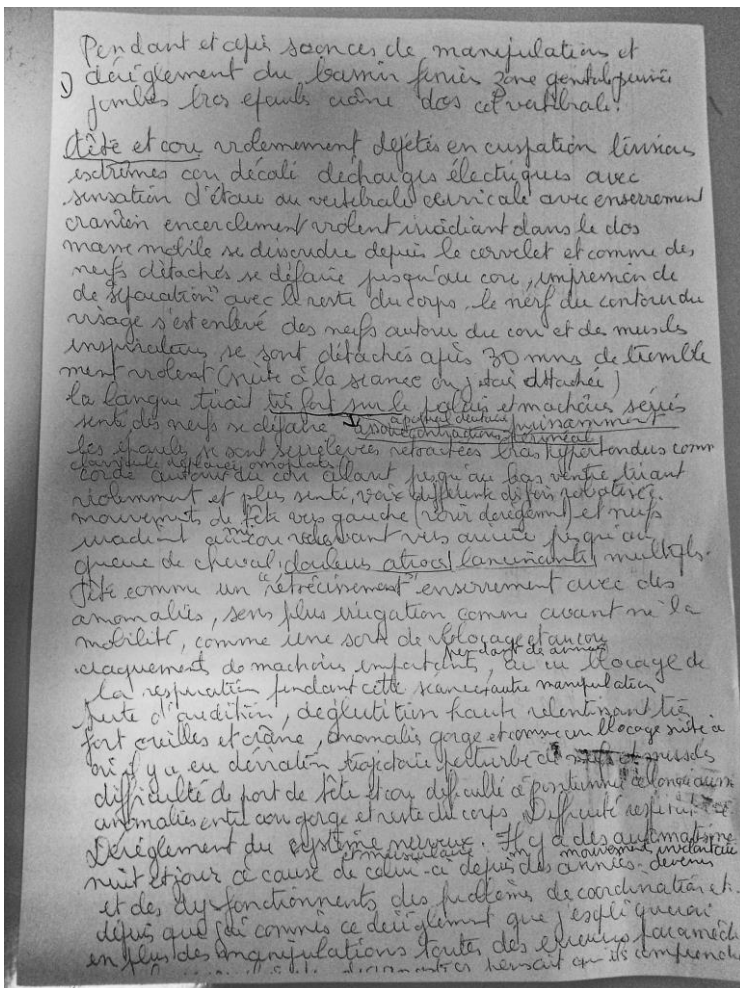 Pendant et après séances de manipulations et
1) dérèglement du bassin fessier zone génitale
jambes bras épaule crâne dos col vertébrale.
tête et cou violemment dejetés en
extrêmes cou décalé decharges électriques avec
sensation d'étau au vertébrale cervicale avec enserrement
cranien encerclement violent irradiant dans le dos
masse mobile se dissoudre depuis le cervelet et comme des
nerfs détachés se défaire jusqu'au cou, impression de
de séparation" avec le reste du corps. le nerf du contour du
visage s'est enlevé des nerfs autour du cou et des muscles
inspirateurs se sont détachés après 30 mns de tremble
ment violent (suite à la séance où j'étais détachée)
la langue tirait très fort sur le palais et machoires
senti des nerfs se défaire puissamment
les épaules se sont surelevées retractées bras hypertendus comm
clavicule déplacée omoplates
corde autour du cou allant jusqu'au bas ventre tirant
violemment et plus senti, voix différente robotisée.
mouvements de tête vers gauche (voir) et nerfs
irradiant cou vers arrière jusqu'au
queue de cheval, douleurs atroces lancinantes multipl.
tête comme un "rétrécissement" enserrement avec des
anomalies, sens plus irrigation comme avant ni la
mobilité, comme une sorte de blocage
pendant des années
craquements de machoires importants, ai eu blocage de
la respiration pendant cette séance/autre manipulation
perte d'audition, déglutition haute relentissant très
fort oreilles et crâne, anomalies gorge et comme un blocage suite à
où il y a eu déviation trajectoire perturbé de et muscles
difficulté de port de tête et cou difficulté à positionner
anomalies entre cou gorge et reste du corps. Difficulté
Dérèglement du système nerveux. Il y a des automatisme
et musculaire mouvement involontaire
nuit et jour à cause de celui-ci depuis des années. devenu
et des dysfonctionnents des problèmes de coordination et.
depuis que j'ai commis ce dérèglement que j'expliquerai
en plus des manipulations toutes des erreurs